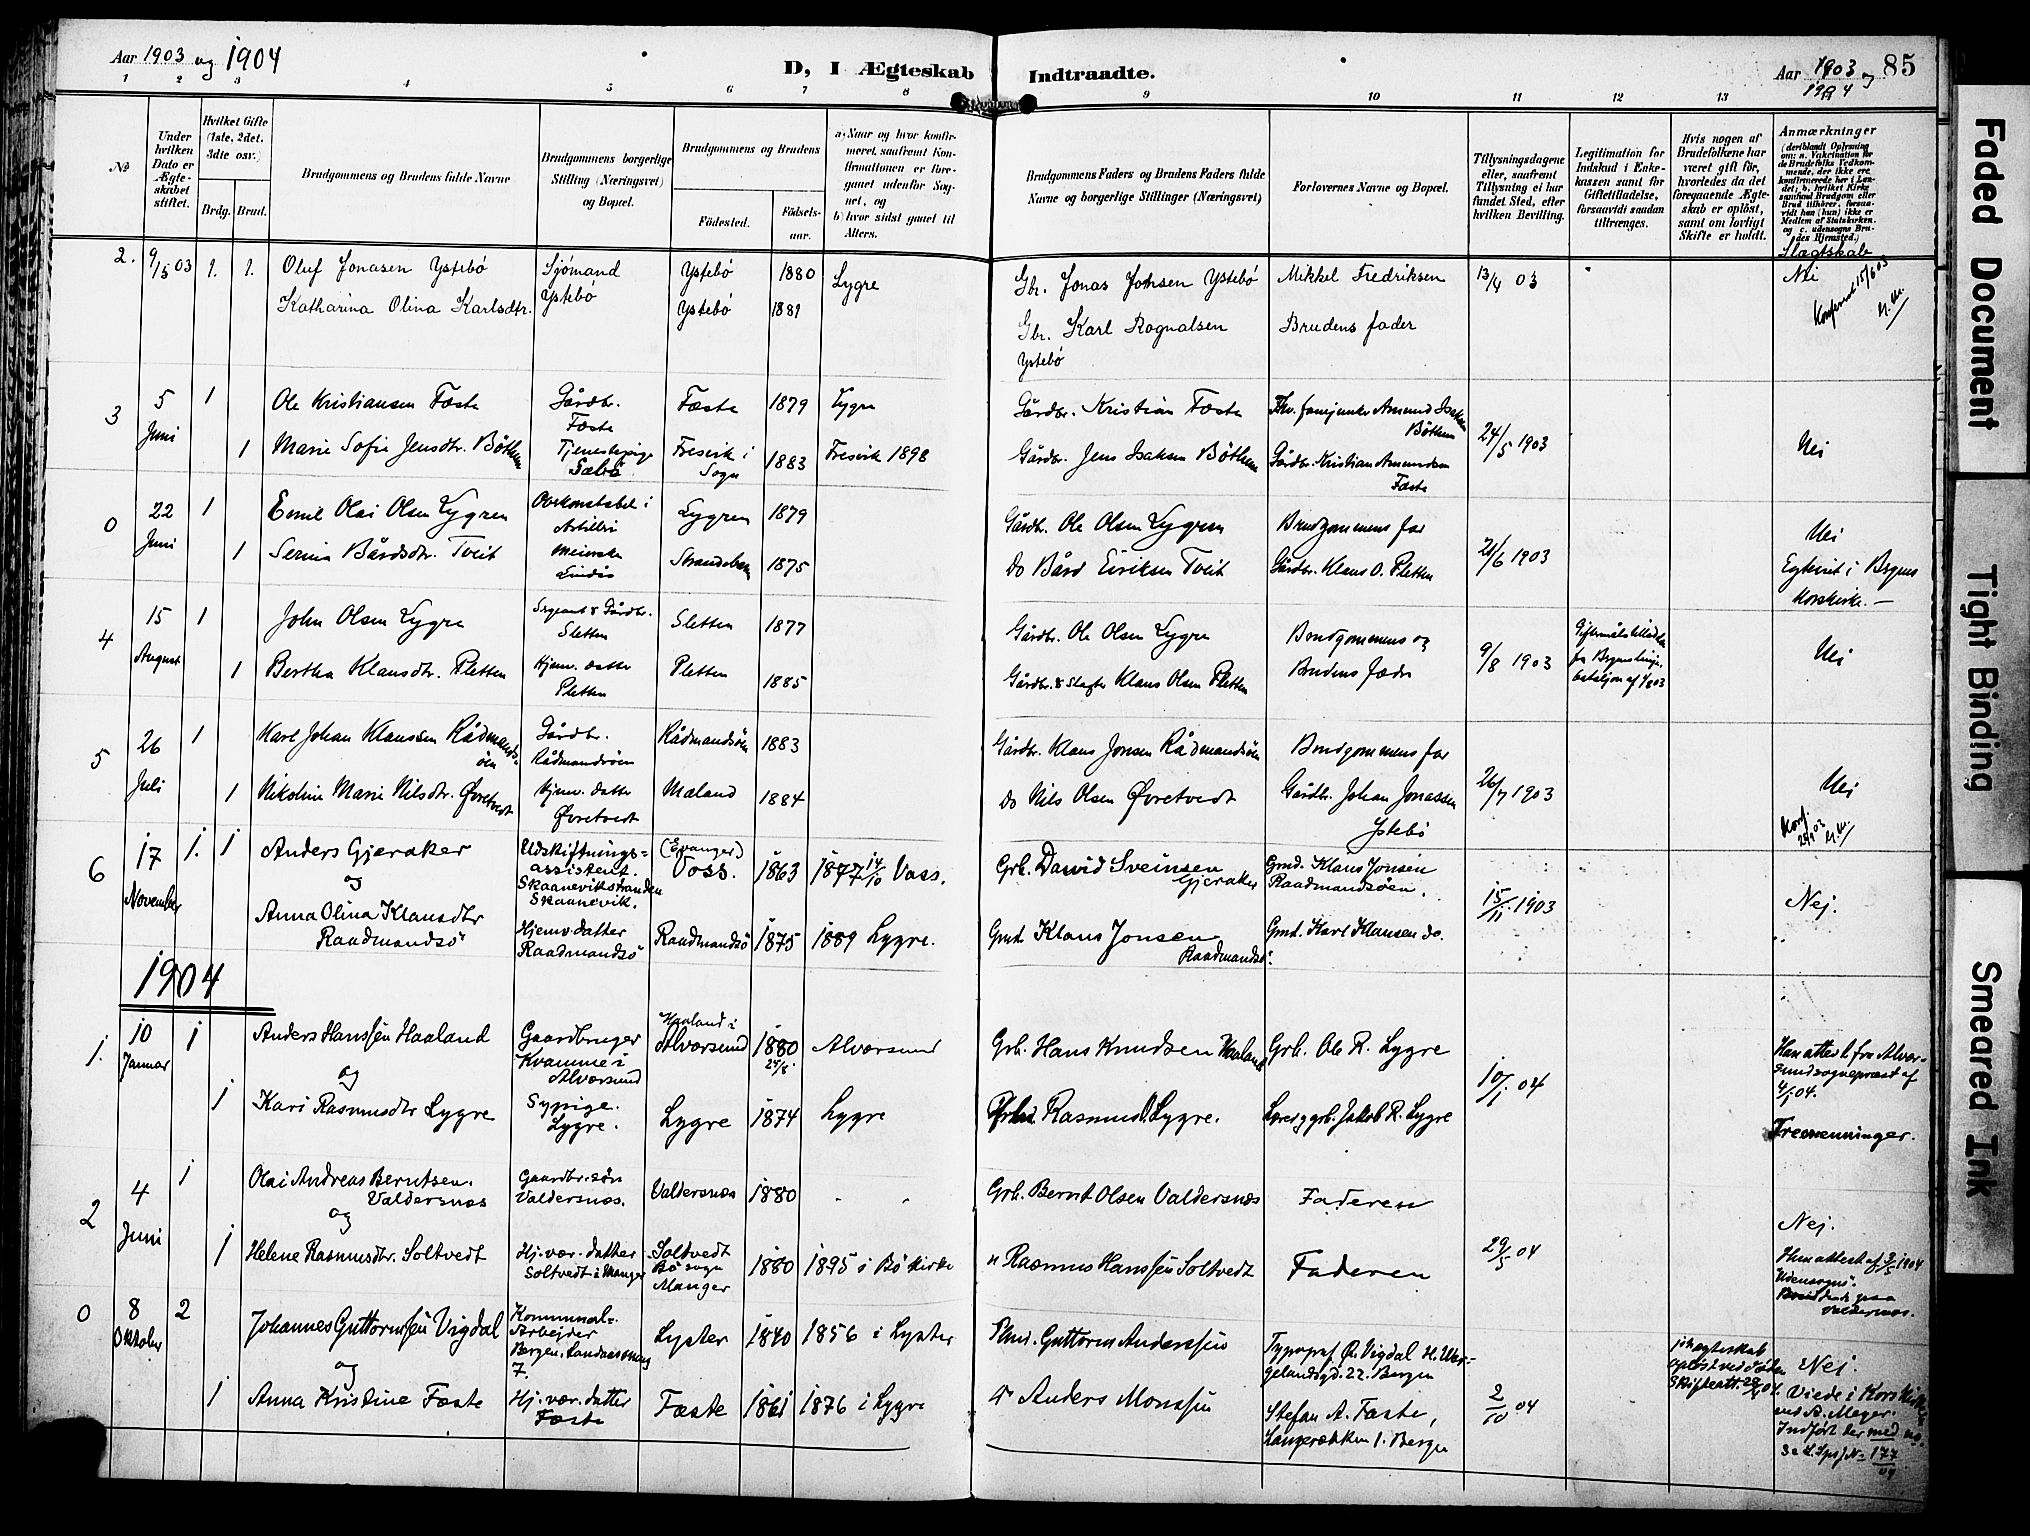 Aar 1903 og 1904
D, I Ægteskab Indtraadte.
Aar 1903 og 1904
85
1 2 3 4 5 6 7 8 9 10 11 12 13
No
Under hvilken Dato er Ægteskabet stiftet.
Hvilket Gifte (1ste, 2det, 3die osv.)
Brdg. Brud.
Brudgommens og Brudens fulde Navne
Brudgommens borgerlige Stilling (Næringsvei) og Bopæl.
Brudgommens og Brudens
Födested.
Födselsaar.
a) Naar og hvor konfirmeret, saafremt Konfirmationen er foregaaet udenfor Sognet, og
b) hvor sidst gaaet til Alters.
Brudgommens Faders og Brudens Faders fulde Navne og borgerlige Stillinger (Næringsvei)
Forlovernes Navne og Bopæl.
Tillysningsdagene eller, saafremt Tillysning ei har fundet Sted, efter hvilken Bevilling.
Legitimation for Indskud i Enkekassen samt for Giftetilladelse, forsaavidt saadan tiltrænges.
Hvis nogen af Brudefolkene har været gift før, hvorledes da det foregaaende Ægteskab er opløst, samt om lovligt Skifte er holdt.
Anmærkninger (deriblandt Oplysning om: a. Vakcination for de Brudefolks Vedkommende, der ikke ere konfirmerede her i Landet; b. hvilket Kirkesamfund Brudgom eller Brud tilhører, forsaavidt han (hun) ikke er Medlem af Statskirken, og c. udensogns Brudes Hjemsted.)
Slægtskab
2. 9/5 03 1. 1. Oluf Jonasen Ystebö Sjömand Ystebö 1880 Lygre Gbr. Jonas Johsen Ystebö Mikkel Fredriksen 13/4 03 Nei
Katharina Olina Karlsdtr. Ystebö Ystebö 1881 Gbr. Karl Rognalsen Ystebö Brudens fader
3 5 Juni 1 Ole Kristiansen Fæste Gårdbr. Fæste Fæste 1879 Lygre Gårdbr. Kristian Fæste
1 Marie Sofie Jensdtr. Böthun Tjenestepige Sæbö Fresvik i Sogn 1883 Fresvik 1898 Gårdbr. Jens Isaksen Böthun Gårdbr. Kristian Amundsen Fæste 24/5 1903 Nei
0 22 Juni 1 Emil Olai Olsen Lygren Overkonstabel i Artilleri Lygren 1879 Gårdbr. Ole Olsen Lygren Brudgommens far Nei
1 Serina Bårdsdtr. Tveit Lindås Strandebarm 1875 Do Bård Eiriksen Tveit Gårdbr. Klaus O. Pletten 21/6 1903 Egteviet i Bergens Korskirke. –
4 15 August 1 John Olsen Lygre Sergeant & Gårdbr. Sletten Sletten 1877 Gårdbr. Ole Olsen Lygre Brudgommens og
1 Bertha Klausdtr. Pletten Hjemv. datter Pletten Pletten 1885 Gårdbr. & Slagter Klaus Olsen Pletten Brudens fædre 9/8 1903 Nei
5 26 Juli 1 Karl Johan Klaussen Rådmandsöen Gårdbr. Rådmandsöen Rådmandsöen 1883 Gårdbr. Klaus Jonsen Rådmandsöen Brudgommens far
1 Nikoline Marie Nilsdtr. Øvretvedt Hjemv. datter Øvretvedt Maland 1884 Do Nils Olsen Øvretvedt Gårdbr. Johan Jonassen Ystebö 26/7 1903 Nei
6 17 November 1. 1 Anders Gjeraker Udskiftningsassistent. Skaanevikstranden Skaanevik. (Evanger) Voss. 1863 1877 14/10 Voss. Grb. David Sveinsen Gjeraker Gmd. Klaus Jonsen Raadmandsøen. 15/11 1903 Nej.
og
Anna Olina Klausdtr Raadmandsö Hjemv. datter Raadmandsö Raadmandsö 1875 1889 Lygre. Gmd. Klaus Jonsen Raadmandsö. Gmd. Karl Klausen do.
1904
1. 10 Januar 1 Anders Hanssen Haaland Gaardbruger Kvamme i Alversund Haaland i Alversund 1880 24/8. Alversund Grb. Hans Knudsen Haaland Grb. Ole R. Lygre 10/1 04 Han attest fra Alversund sognepræst af 4/1 04.
og
1 Kari Rasmusdtr Lygre Sypige. Lygre. Lygre 1874 Lygre Rasmus Lygre. Jakob R. Lygre Tremenninger.
2 4 Juni 1 Olai Andreas Berntsen Valdersnæs Gaardbr. søn Valdersnæs. Valdersnæs 1880 Grb. Bernt Olsen Valdersnæs Faderen
og
1 Helene Rasmusdtr. Soltvedt Hj. vær. datter Soltvedt i Manger Soltvedt Bø sogn Manger 1880 1895 i Bø kirke " Rasmus Hanssen Soltvedt Faderen 29/5 04 Nej. Hun attest af 3/5 1904 Udensogns. Bosidde paa Valdersnæs.
0 8 Oktober 2 Johannes Guttormsen Vigdal Kommunal-Arbejder Bergen. 7. Lyster 1840 1856 i Lyster Guttorm Anderssen Typograf Vigdal H. Wergelandsgd. 22. Bergen Nej.
og
1 Anna Kristine Fæste Hj. vær. datter Fæste Fæste 1861 1876 i Lygre Anders Monssen Stefan A. Fæste, Bergen 2/10 04 Viede i Korskirken ved A. Meyer. Indført her med 177/04
Faded Document
Tight Binding
Smeared Ink